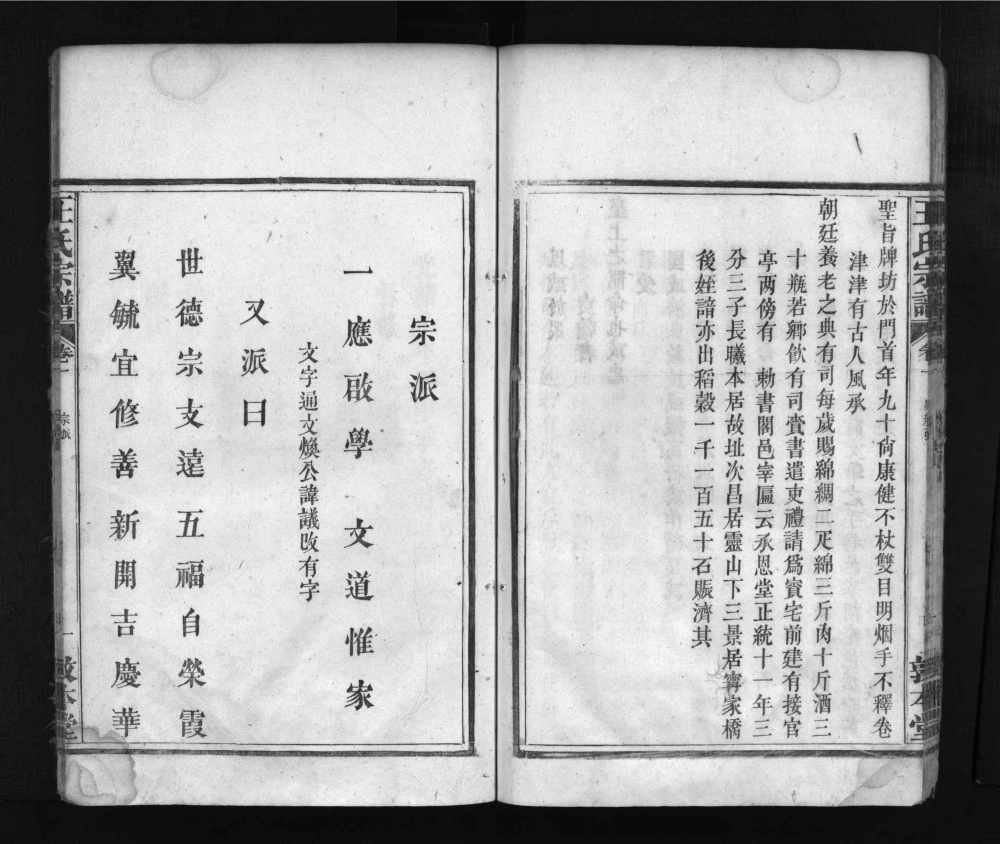 聖旨牌坊於門首年九十尙康健不杖雙目明烟手不釋卷
津津有古人風承
朝廷養老之典有司每歲賜綿綢二疋綿三斤肉十斤酒三
十瓶若鄉飲有司賫書遣吏禮請爲賓宅前建有接官
亭两傍有 勅書閣邑宰匾云承恩堂正統十一年三
分三子長曦本居故址次昌居靈山下三景居寗家橋
後姪諳亦出稻穀一千一百五十石賑濟其
王氏宗譜
卷一
敦本堂
宗派
一應啟學 文道惟家
文字通文煥公諱議改有字
又派曰
世德宗支遠五福自榮霞
翼毓宜修善新開吉慶華
王氏宗譜
卷一
宗派
一
敦本堂